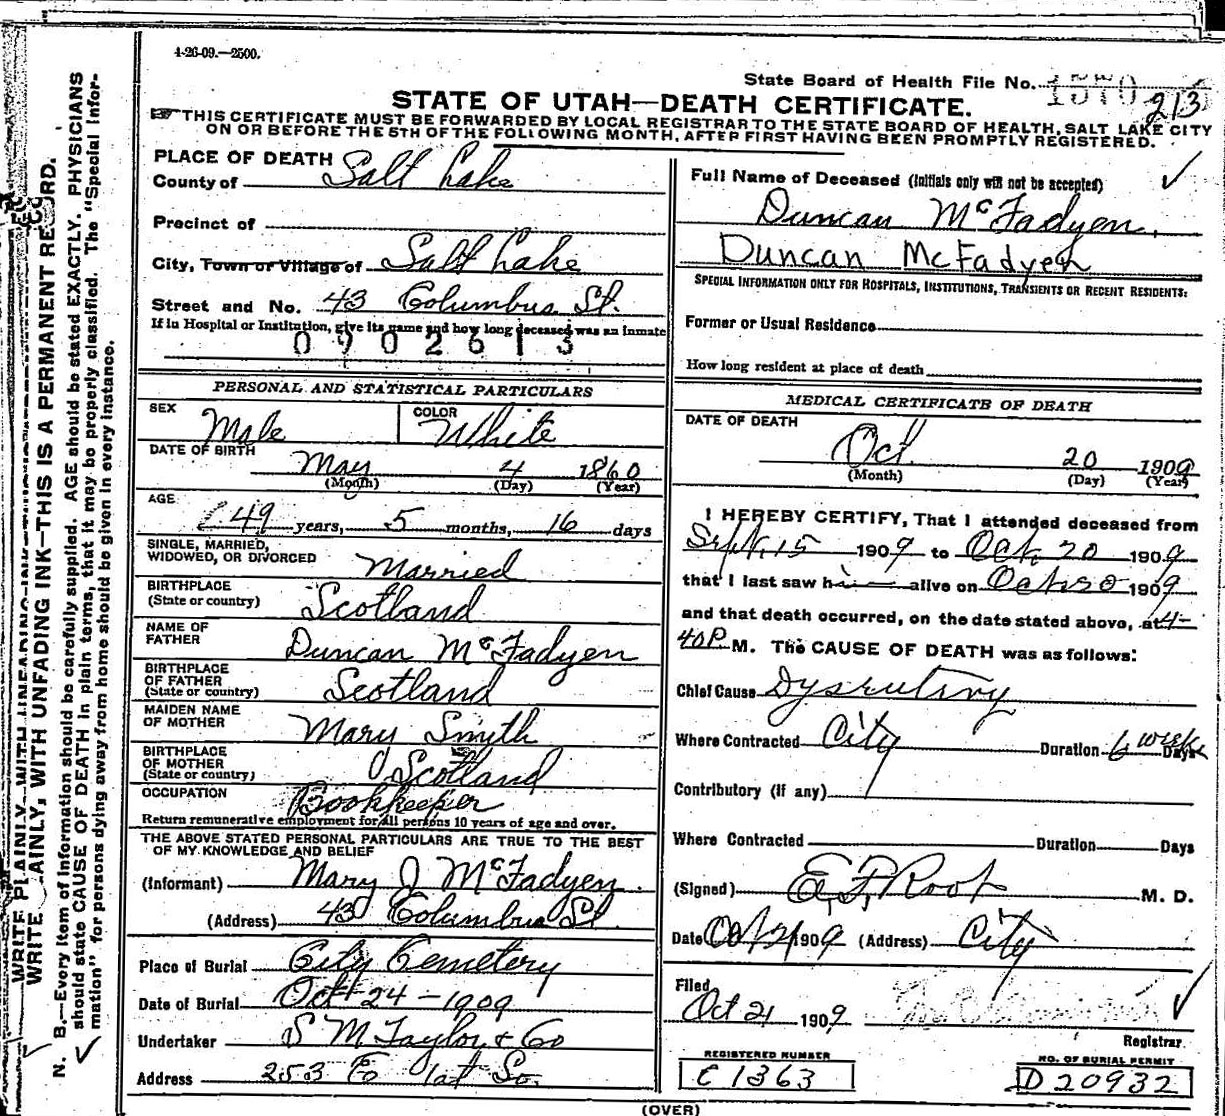 4-26-09.—2500.
State Board of Health File No. 1570
213
STATE OF UTAH—DEATH CERTIFICATE.
THIS CERTIFICATE MUST BE FORWARDED BY LOCAL REGISTRAR TO THE STATE BOARD OF HEALTH, SALT LAKE CITY
ON OR BEFORE THE 5TH OF THE FOLLOWING MONTH, AFTER FIRST HAVING BEEN PROMPTLY REGISTERED.
WRITE PLAINLY, WITH UNFADING INK—THIS IS A PERMANENT RECORD.
N. B.—Every item of information should be carefully supplied. AGE should be stated EXACTLY. PHYSICIANS
should state CAUSE OF DEATH in plain terms, that it may be properly classified. The "Special Infor-
mation" for persons dying away from home should be given in every instance.
PLACE OF DEATH
County of Salt Lake
Precinct of
City, Town or Village of Salt Lake
Street and No. 43 Columbus St.
If in Hospital or Institution, give its name and how long deceased was an inmate
0902613
PERSONAL AND STATISTICAL PARTICULARS
SEX Male COLOR White
DATE OF BIRTH May 4 1860
(Month) (Day) (Year)
AGE 49 years, 5 months, 16 days
SINGLE, MARRIED,
WIDOWED, OR DIVORCED Married
BIRTHPLACE
(State or country) Scotland
NAME OF
FATHER Duncan McFadyen
BIRTHPLACE
OF FATHER
(State or country) Scotland
MAIDEN NAME
OF MOTHER Mary Smith
BIRTHPLACE
OF MOTHER
(State or country) Scotland
OCCUPATION Bookkeeper
Return remunerative employment for all persons 10 years of age and over.
THE ABOVE STATED PERSONAL PARTICULARS ARE TRUE TO THE BEST
OF MY KNOWLEDGE AND BELIEF
(Informant) Mary J McFadyen
(Address) 43 Columbus St
Place of Burial City Cemetery
Date of Burial Oct 24-1909
Undertaker S M Taylor & Co
Address 253 E 1st So.
Full Name of Deceased (initials only will not be accepted)
Duncan McFadyen,
Duncan McFadyen
SPECIAL INFORMATION ONLY FOR HOSPITALS, INSTITUTIONS, TRANSIENTS OR RECENT RESIDENTS:
Former or Usual Residence
How long resident at place of death
MEDICAL CERTIFICATE OF DEATH
DATE OF DEATH
Oct 20 1909
(Month) (Day) (Year)
I HEREBY CERTIFY, That I attended deceased from
Sept. 15 1909 to Oct. 20 1909
that I last saw him alive on Oct 20 1909
and that death occurred, on the date stated above, at 4-
40 P. M. The CAUSE OF DEATH was as follows:
Chief Cause Dysentery
Where Contracted City Duration 6 weeks Days
Contributory (if any)
Where Contracted Duration Days
(Signed) E. F. Root M. D.
Date Oct 21 1909 (Address) City
Filed
Oct 21 1909
Registrar.
REGISTERED NUMBER
C 1363
NO. OF BURIAL PERMIT
D 20932
(OVER)